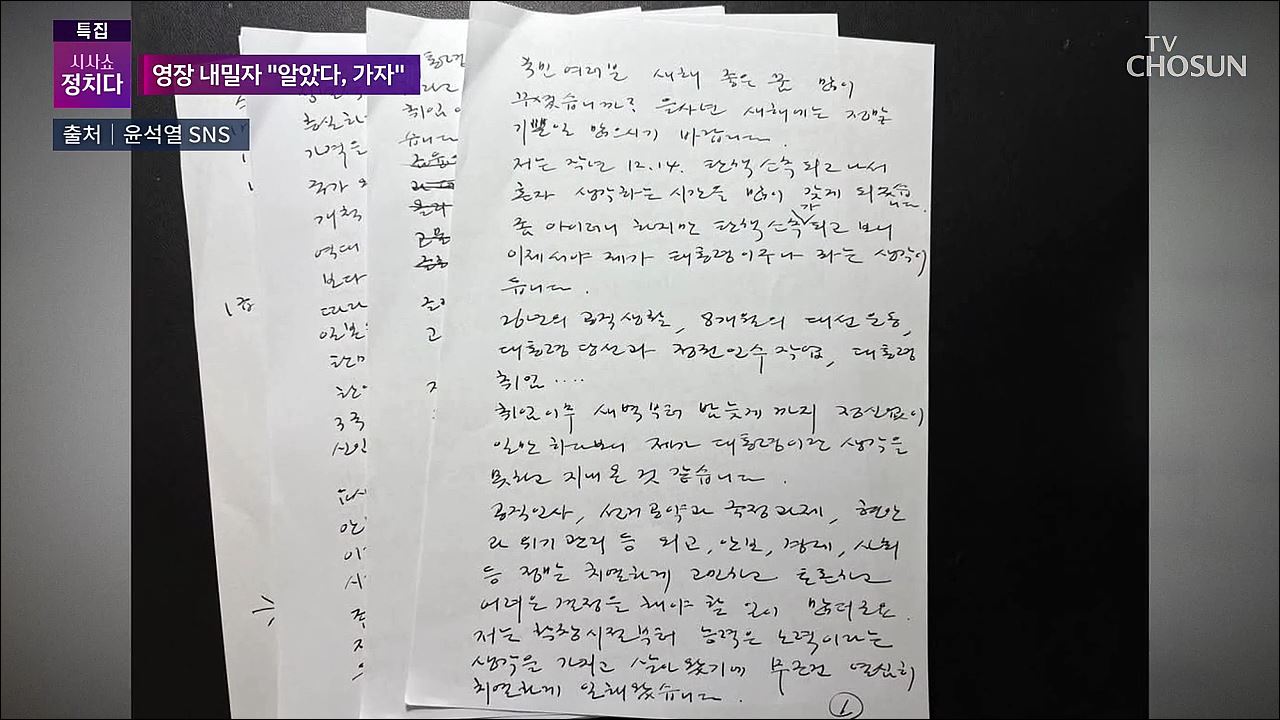 특집
시사쇼
정치다
영장 내밀자 "알았다, 가자"
출처 | 윤석열 SNS
TV
CHOSUN
국민 여러분 새해 좋은 꿈 많이
꾸셨습니까? 을사년 새해에는 정말
기쁠일 많으시기 바랍니다.
저는 작년 12.14. 탄핵 소추 되고 나서
혼자 생각하는 시간을 많이 갖게 되었습니다.
좀 아이러니 하지만 탄핵 소추가 되고 보니
이제서야 제가 대통령이구나 라는 생각이
듭니다.
26년의 공직생활, 8개월의 대선 운동,
대통령 당선과 정권 인수 작업, 대통령
취임 ....
취임이후 새벽부터 밤늦게 까지 정신없이
일만 하다보니 제가 대통령이란 생각을
못하고 지내온 것 같습니다.
공직인사, 선거공약과 국정과제, 현안
과 위기 관리 등 외교, 안보, 경제, 사회
등 정책을 치열하게 고민하고 토론하고
어려운 결정을 해야 할 일이 많더군요.
저는 학창시절부터 능력은 노력이라는
생각을 가지고 살아왔기에 무조건 열심히
치열하게 일해왔습니다.
1
취임
습니다
가격을
국가
개척
역대
보다
3국